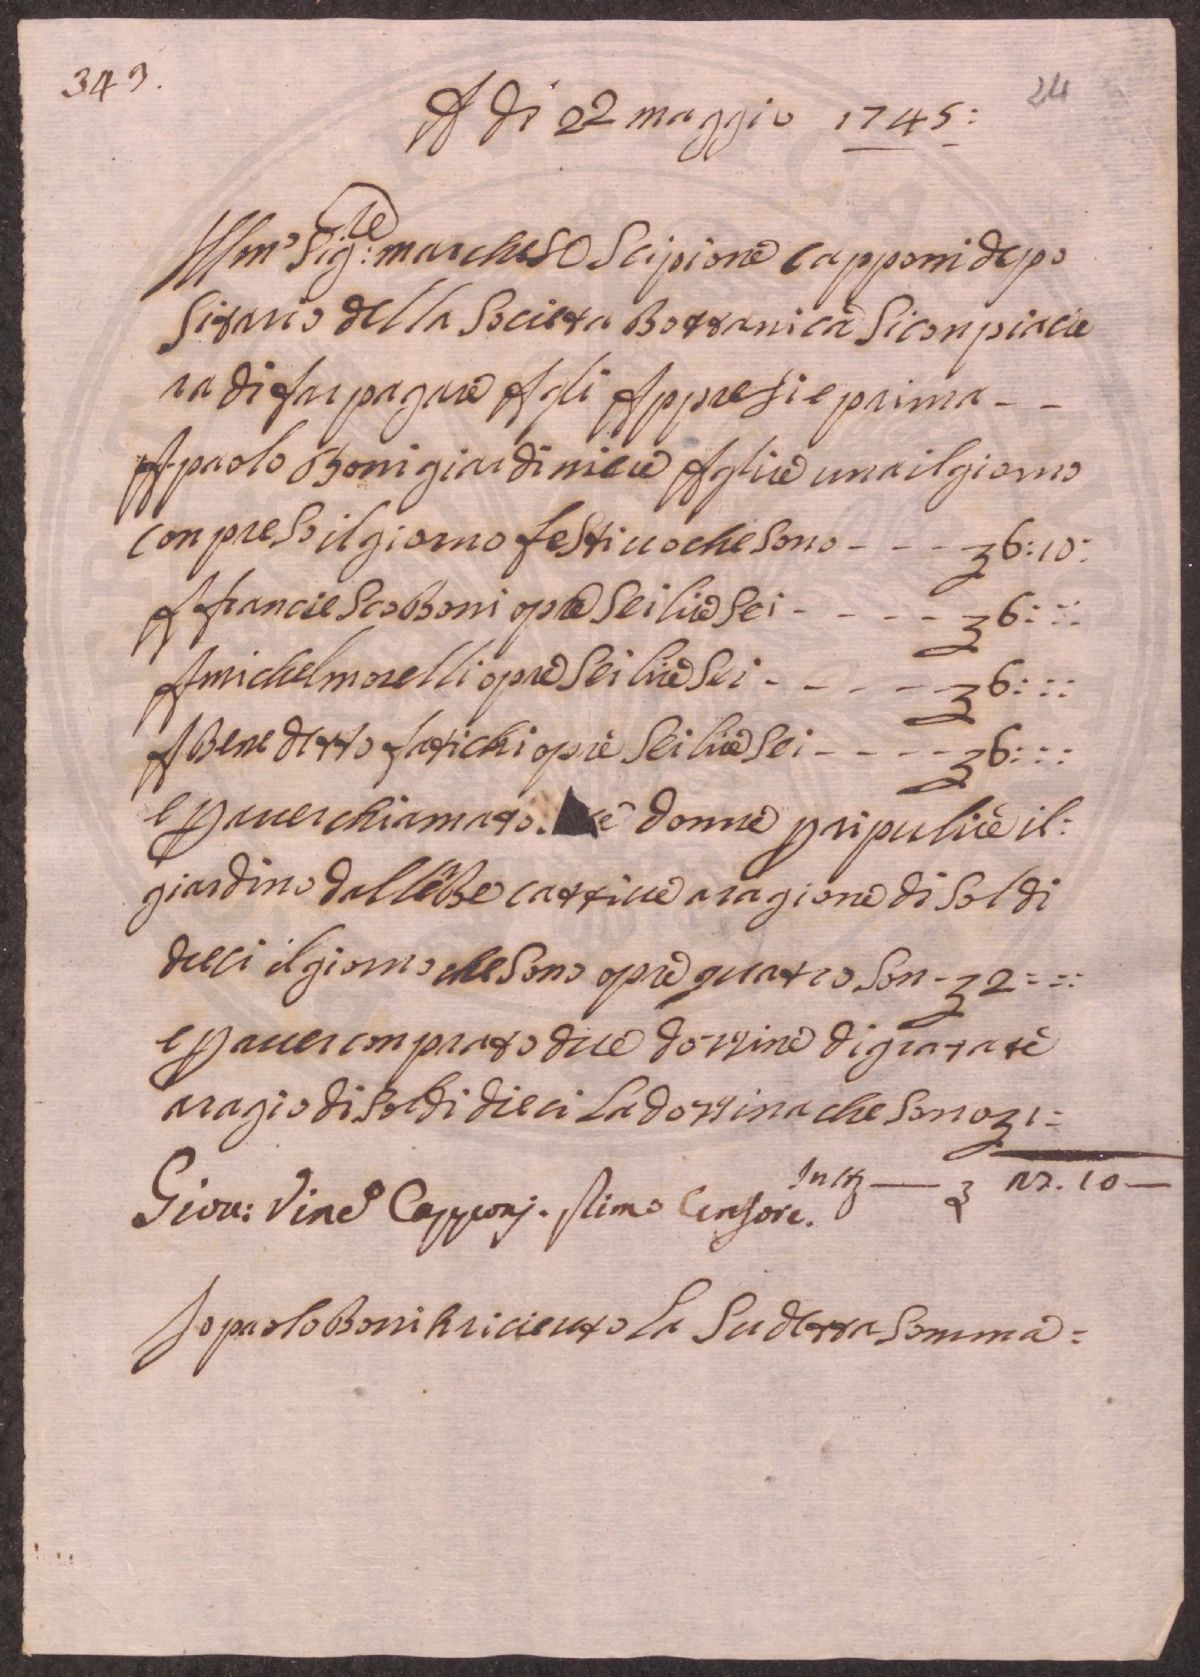 343.
24
A di 22 maggio 1745:
Illmo Sigre: marchese Scipione capponi depo
Sitario della Societa Bottanica Si conpiacie
ra di far pagare A gli Appresie prima - -
A paolo Boni giardiniere A glire una il giorno
conpreso il giorno festiuo che sono - - - 6:10:
A franciesco Boni opre sei lire sei - - - - 6: ::
A michel morelli opre sei lire sei - - - - 6: ::
A Benedetto fatichi opre sei lire sei - - - - 6: ::
e p auer chiamato donne p ripulire il:
giardino dall erbe cattiue a ragione di soldi
dieci il giorno che sono opre quatro son - 2 = ::
e p auer conprato due dozzine di granate
a ragio di soldi dieci la dozzina che sono 1 =
In tto — 27. 10 —
Giou: Vinco Capponj. Primo Censore.
Io paolo Boni h riceuto la sudetta somma =